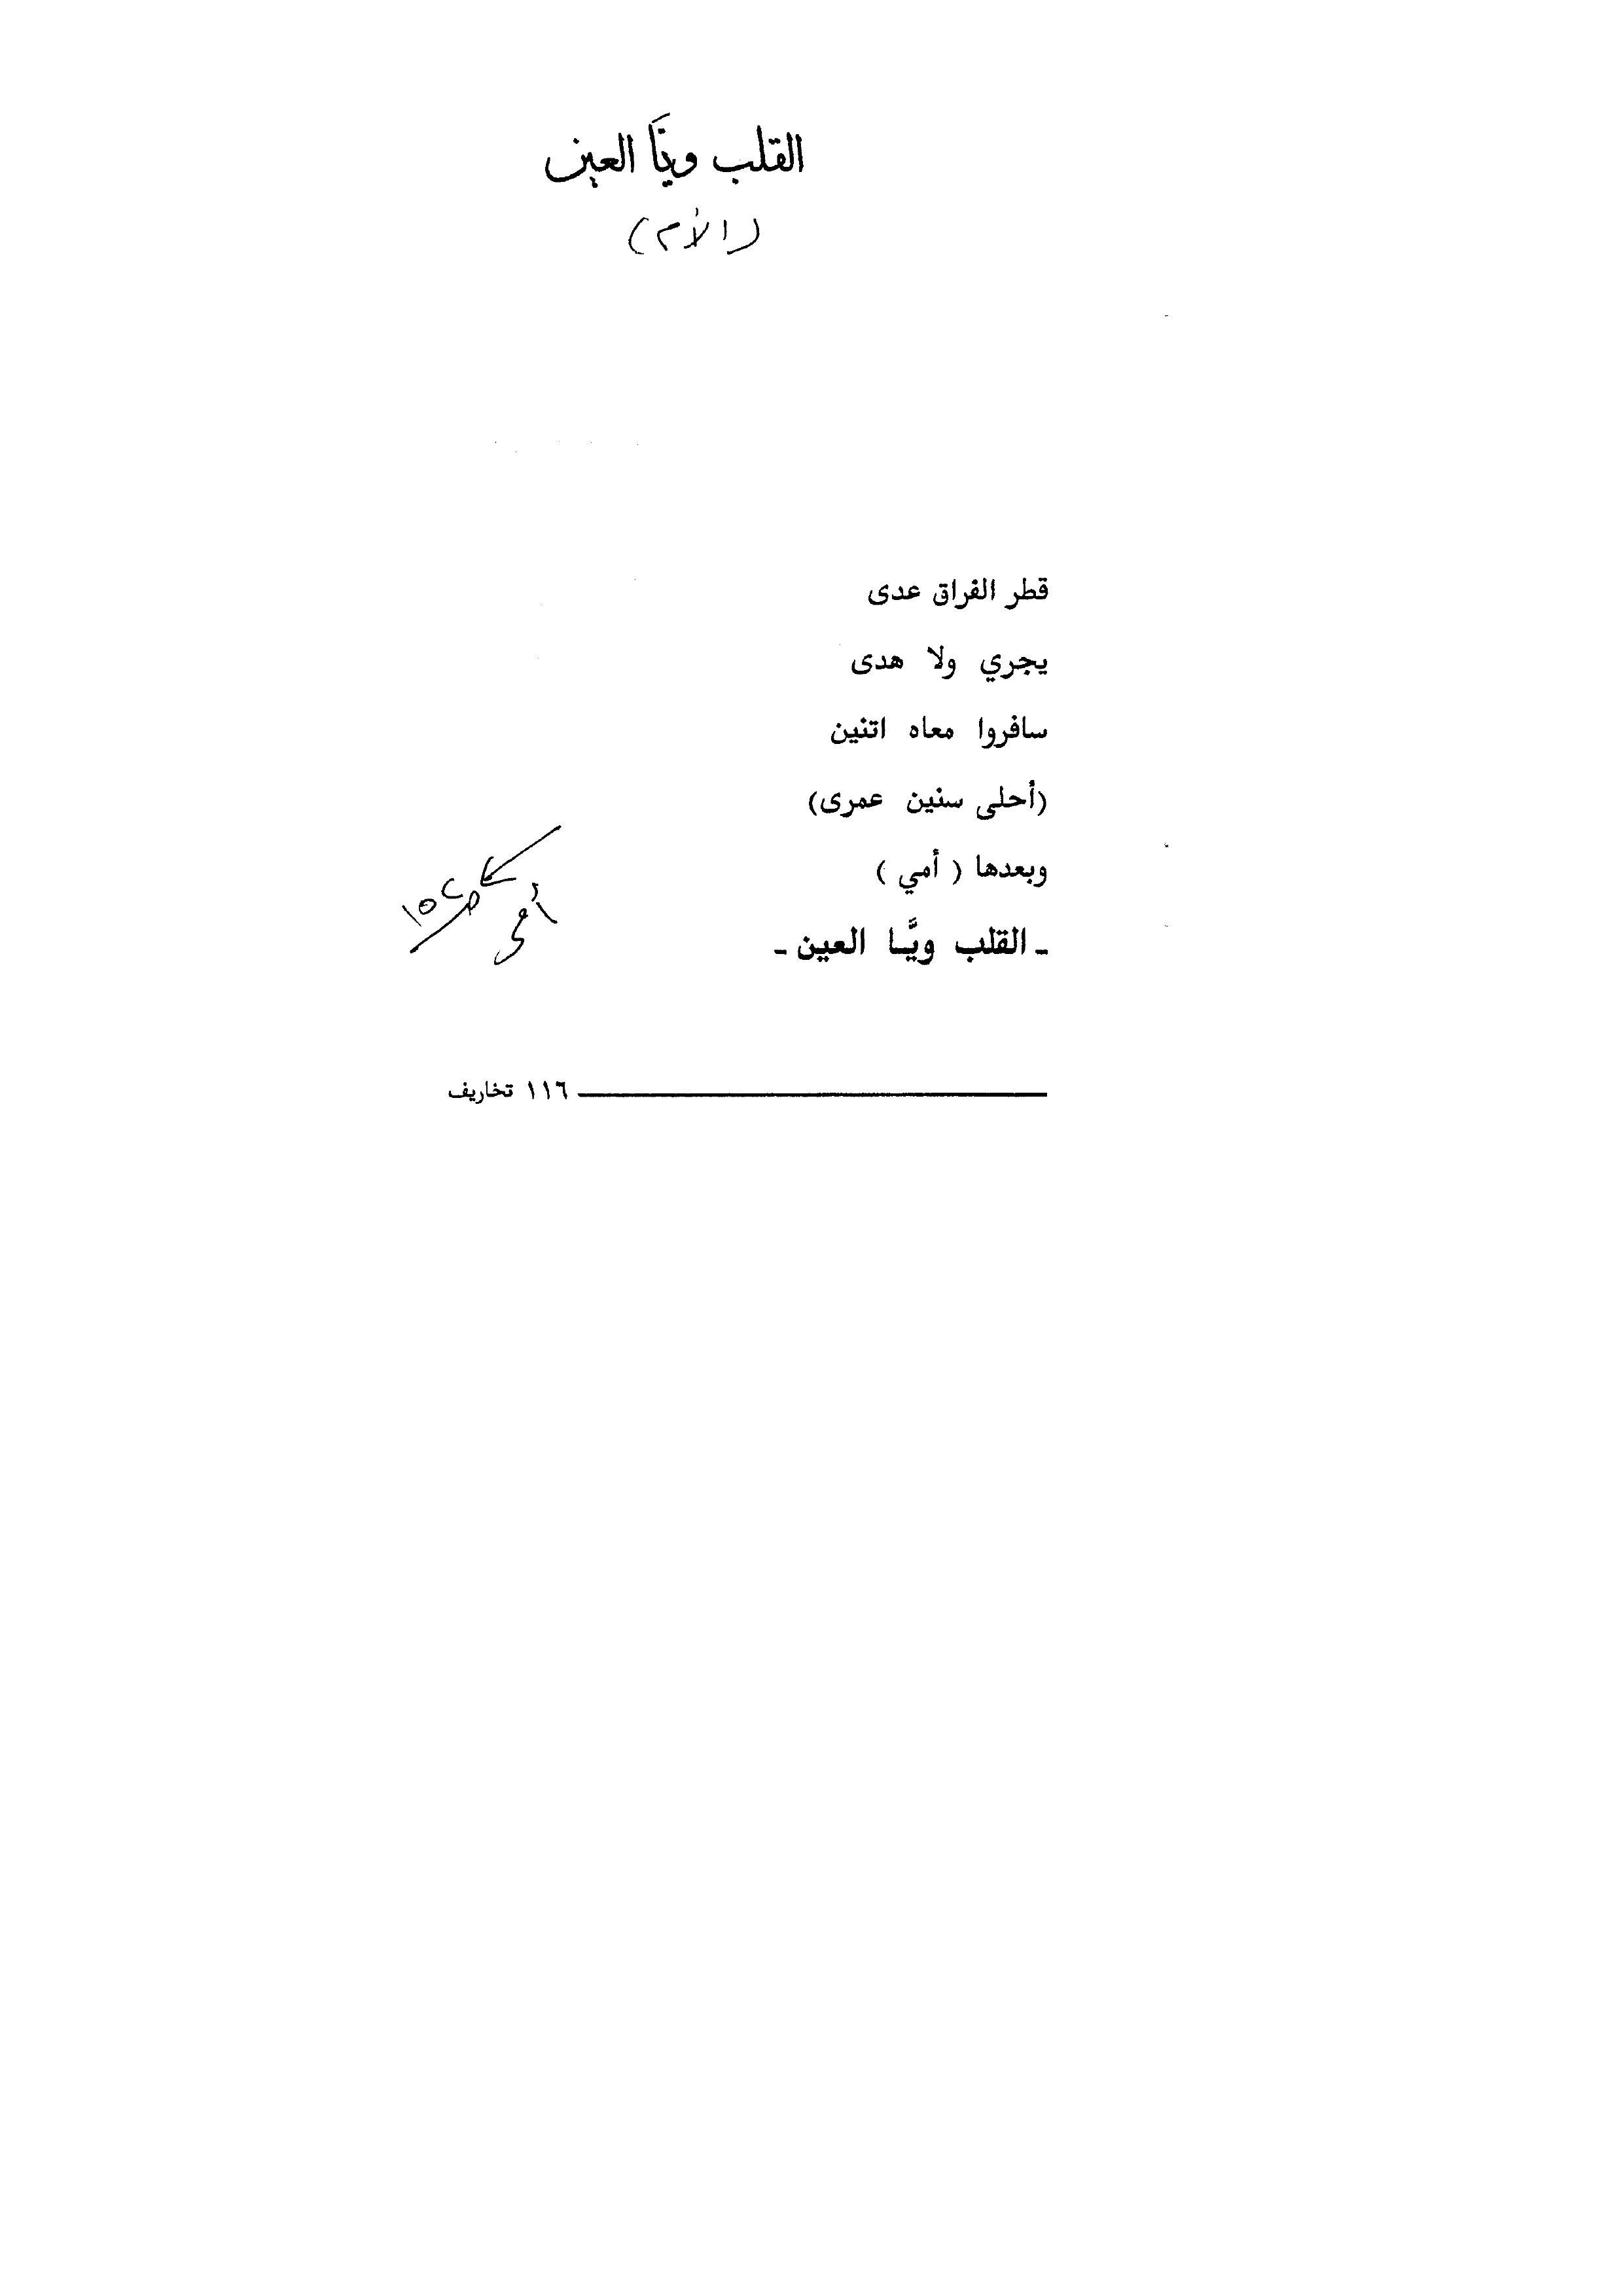 القلب ويَّا العين
(الأم)
قطر الفراق عدى
يجري ولا هدى
سافروا معاه اتنين
(أحلى سنين عمرى)
وبعدها ( أمي )
ـ القلب ويَّا العين ـ
أمى
ص ١٥٢
١١٦ تخاريف